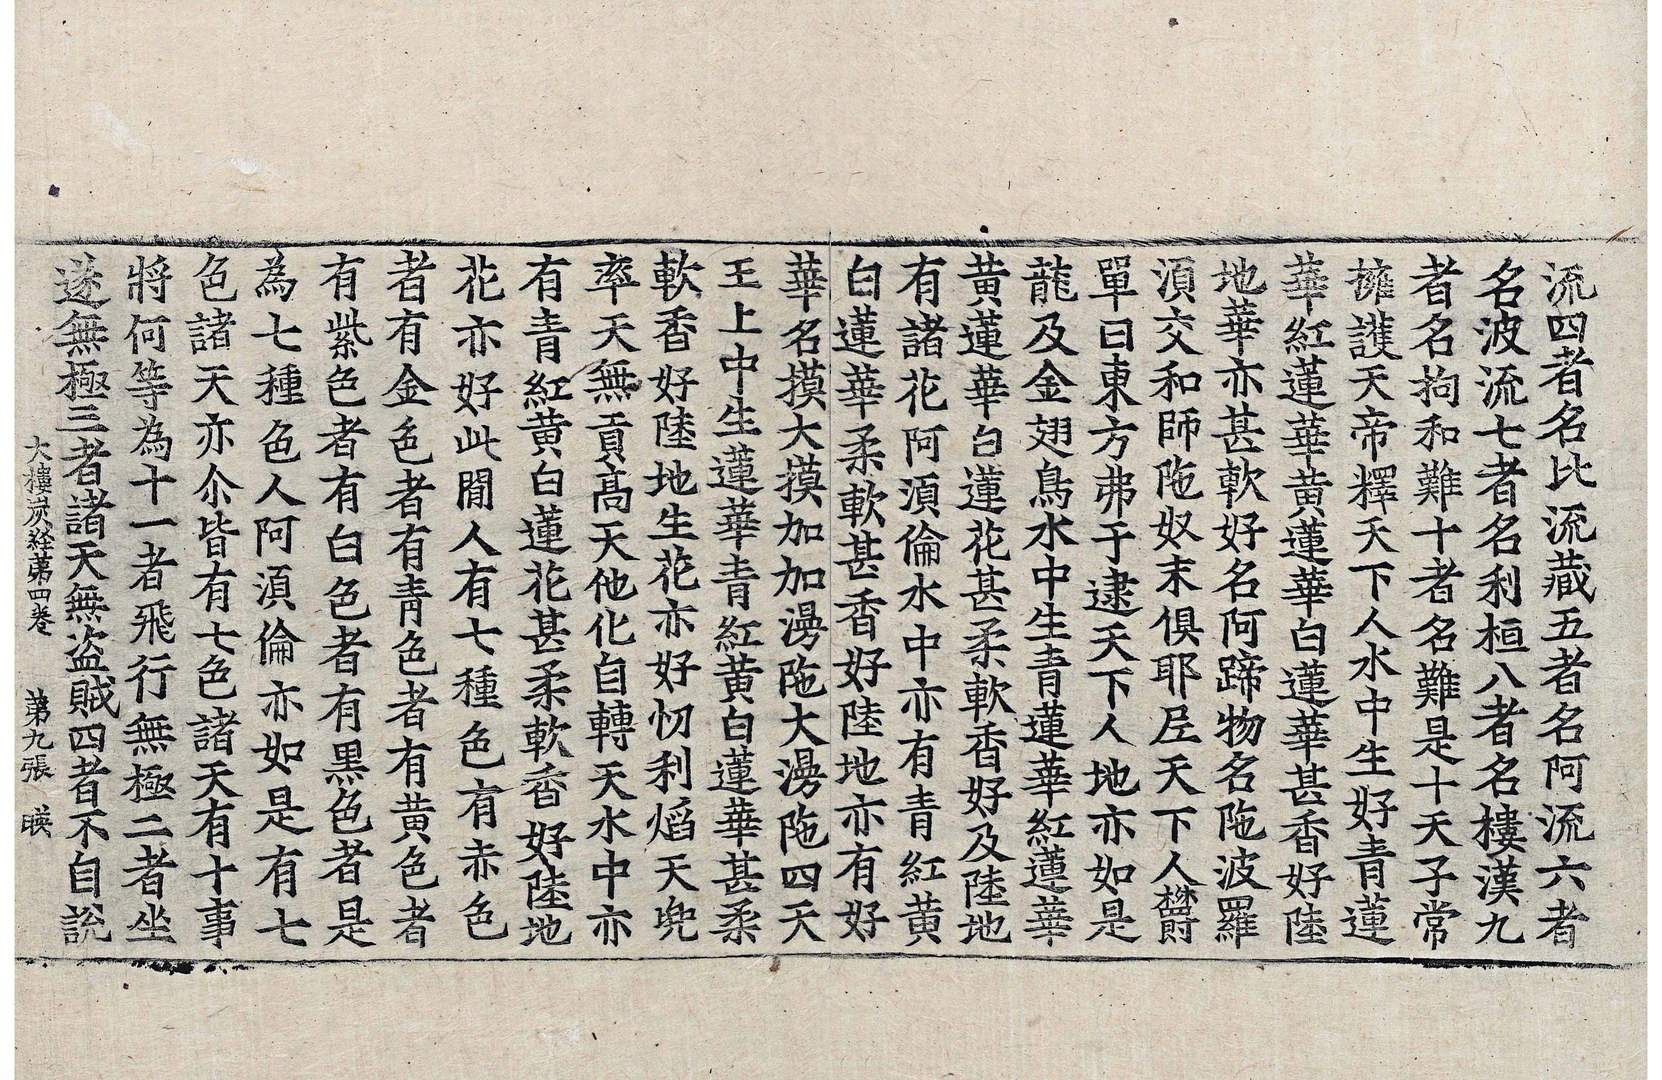 流四者名比流藏五者名阿流六者
名波流七者名利桓八者名樓漢九
者名拘和難十者名難是十天子常
擁護天帝釋天下人水中生好青蓮
華紅蓮華黃蓮華白蓮華甚香好陸
地華亦甚軟好名阿蹄物名陁波羅
湏交和師陁奴末俱耶尼天下人欝
單曰東方弗于逮天下人地亦如是
龍及金翅鳥水中生青蓮華紅蓮華
黃蓮華白蓮花甚柔軟香好及陸地
有諸花阿湏倫水中亦有青紅黃
白蓮華柔軟甚香好陸地亦有好
華名摸大摸加加漫陁大漫陁四天
王上中生蓮華青紅黃白蓮華甚柔
軟香好陸地生花亦好忉利焰天兜
率天無貢高天他化自轉天水中亦
有青紅黃白蓮花甚柔軟香好陸地
花亦好此閒人有七種色有赤色
者有金色者有青色者有黃色者
有紫色者有白色者有黑色者是
為七種色人阿湏倫亦如是有七
色諸天亦尒皆有七色諸天有十事
將何等為十一者飛行無極二者坐
遂無極三者諸天無盜賊四者不自說
大樓炭経苐四卷 苐九張 暎